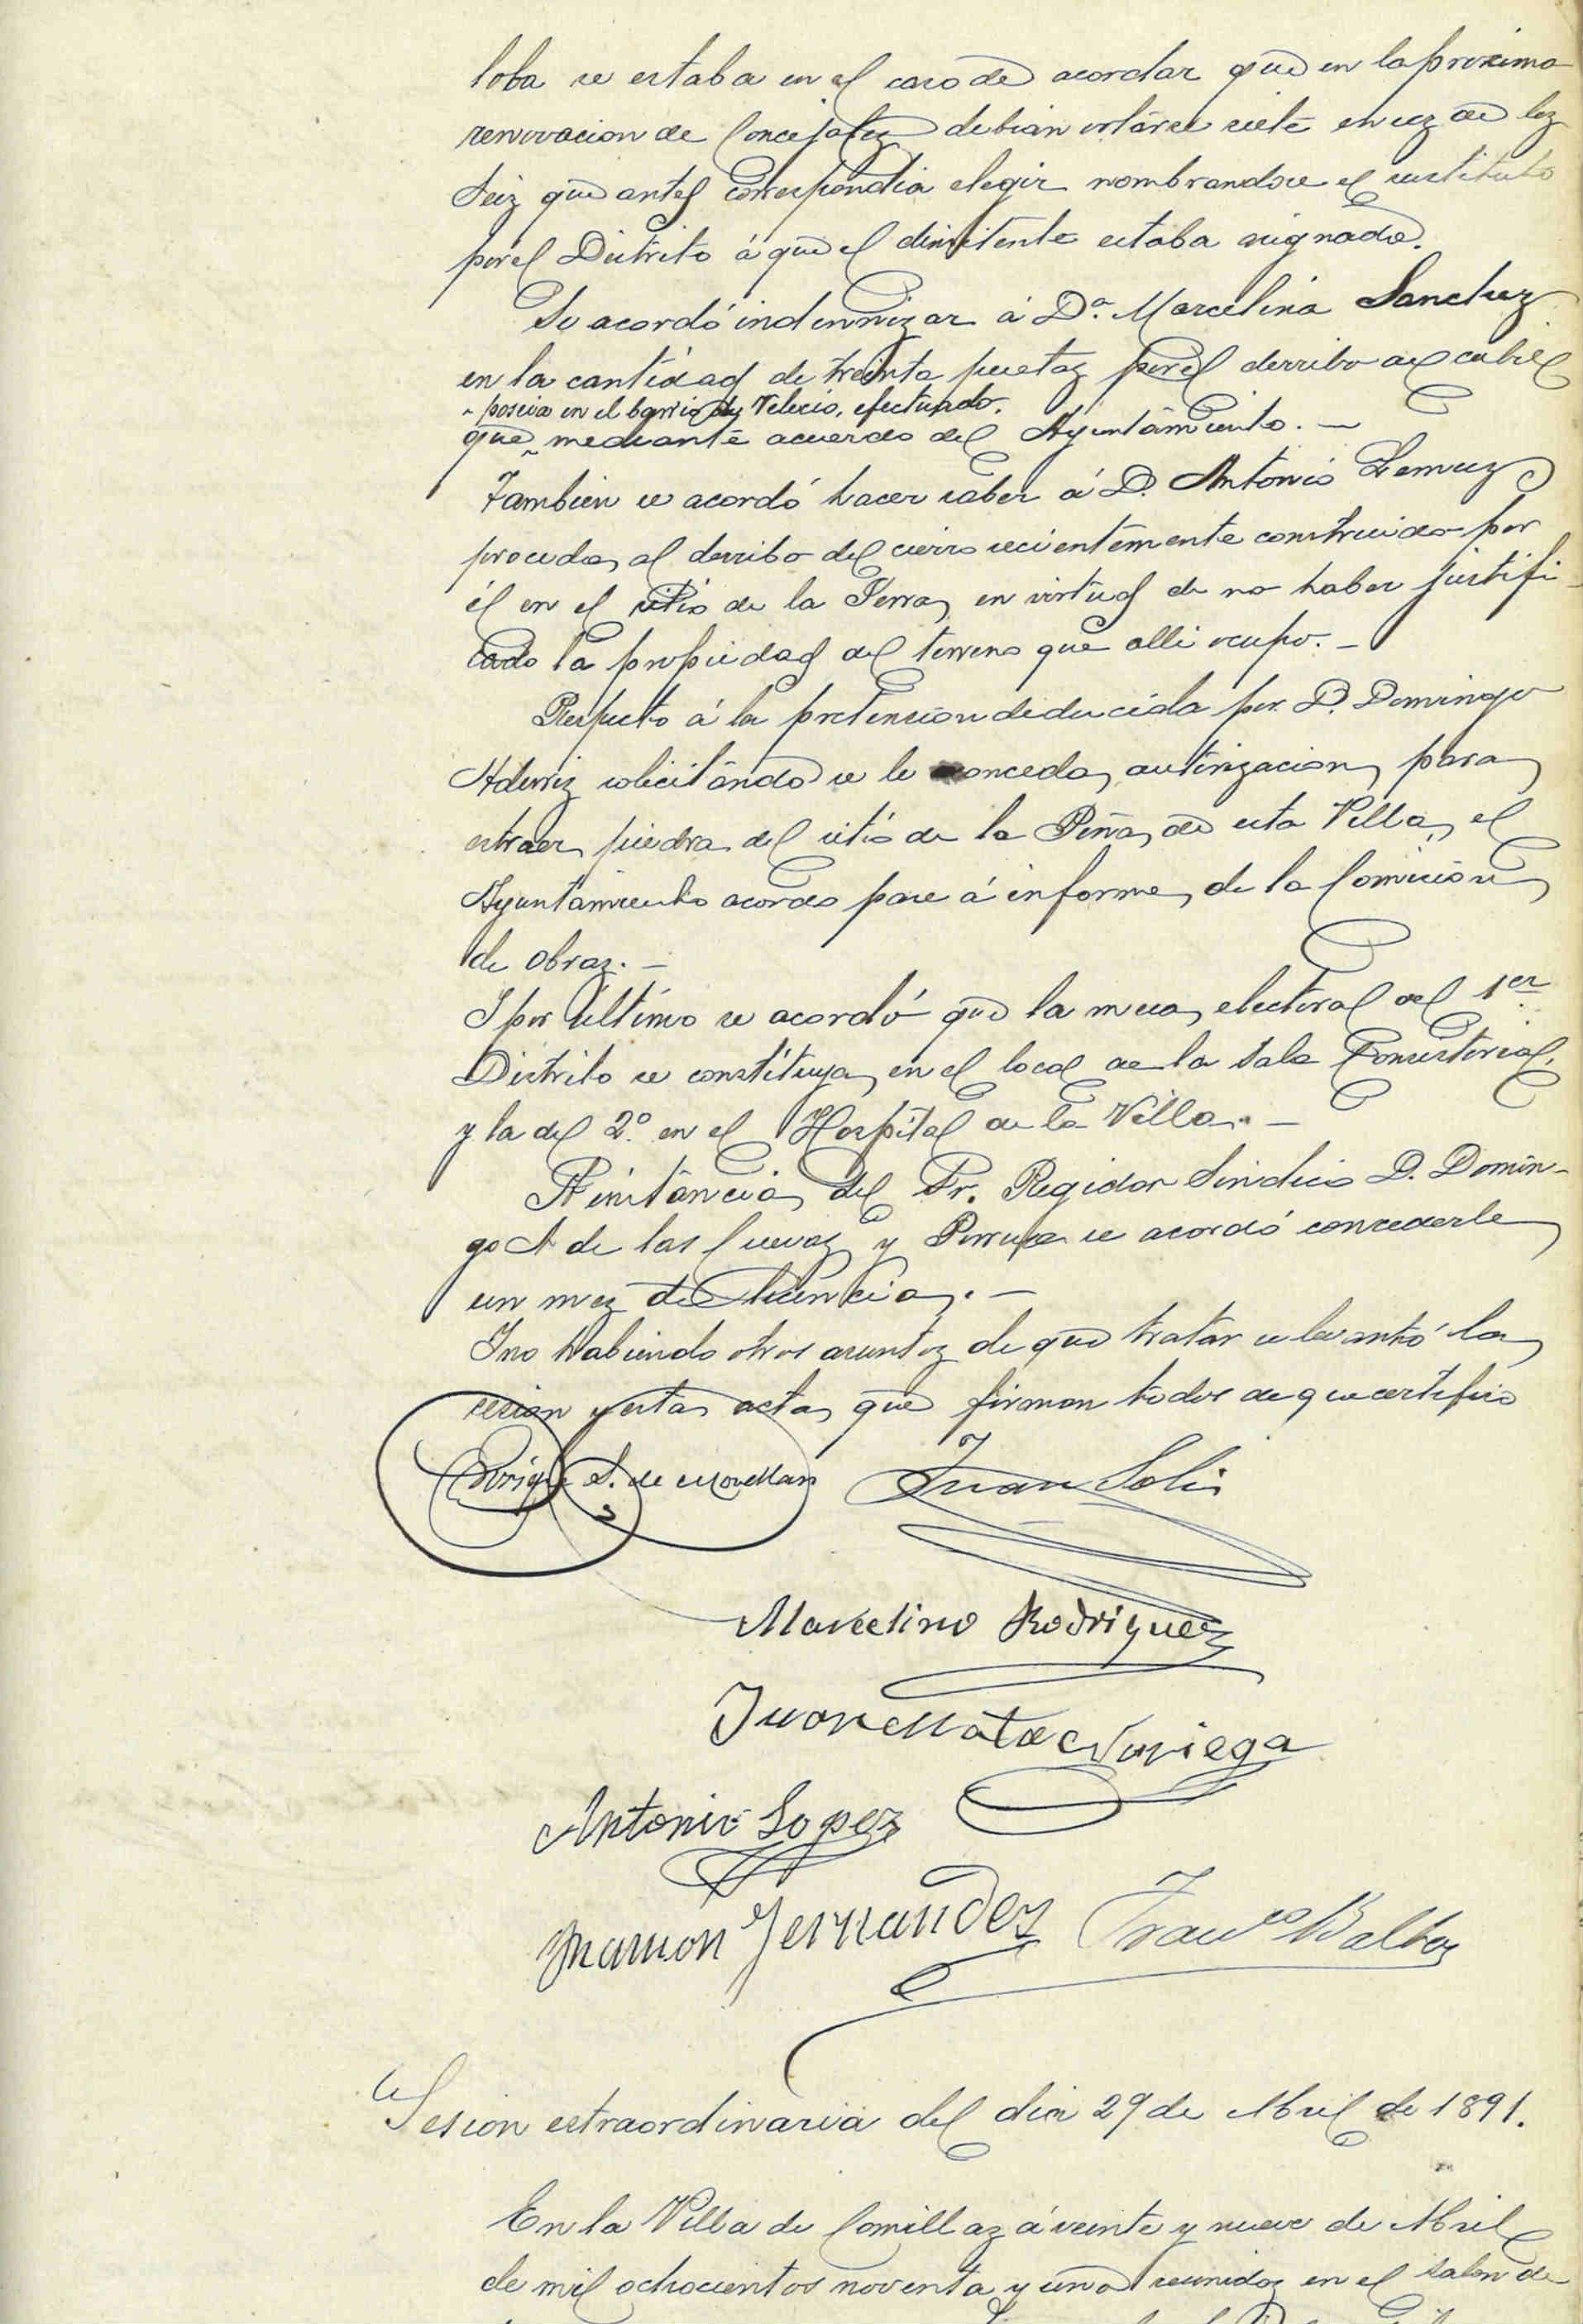 loba se estaba en el caso de acordar que en la proxima
renovacion de Concejales debian votarse siete en vez de los
Seis que antes correspondia elegir nombrandose el sustituto
por el Distrito á que el dimitente estaba asignado.
Se acordó indemnizar á D.ª Marcelina Sanchez
en la cantidad de treinta pesetas por el derribo del cubil
poseia en el barrio de Velecio, efectuado
que mediante acuerdo del Ayuntamiento. —
Tambien se acordó hacer saber á D. Antonio
proceda al derribo del cierro recientemente construido por
él en el sitio de la en virtud de no haber justifi-
cado la propiedad del terreno que alli ocupo. —
Respecto á la pretension deducida por D. Domingo
solicitando se le conceda autorizacion para
estraer piedra del sitio de la Peña de esta Villa, el
Ayuntamiento acordo pase á informe de la Comision
de obras. —
Y por último se acordó que la mesa electoral del 1er
Distrito se constituya en el local de la Sala Consistorial,
y la del 2.º en el Hospital de la Villa. —
A instancia del Sr. Regidor Sindico D. Domin-
go A de las Cuevas y se acordó concederle
un mes de licencia. —
Y no habiendo otros asuntos de que tratar se levantó la
sesion y esta acta que firman todos de que certifico
Enrique S. de Movellan Juan Solis
Marcelino Rodriguez
Juan Mata Noriega
Antonio Lopez
Ramon Fernandez Franco Balbas
Sesion estraordinaria del dia 29 de Abril de 1891.
En la Villa de Comillas á veinte y nueve de Abril
de mil ochocientos noventa y uno reunidos en el salon de